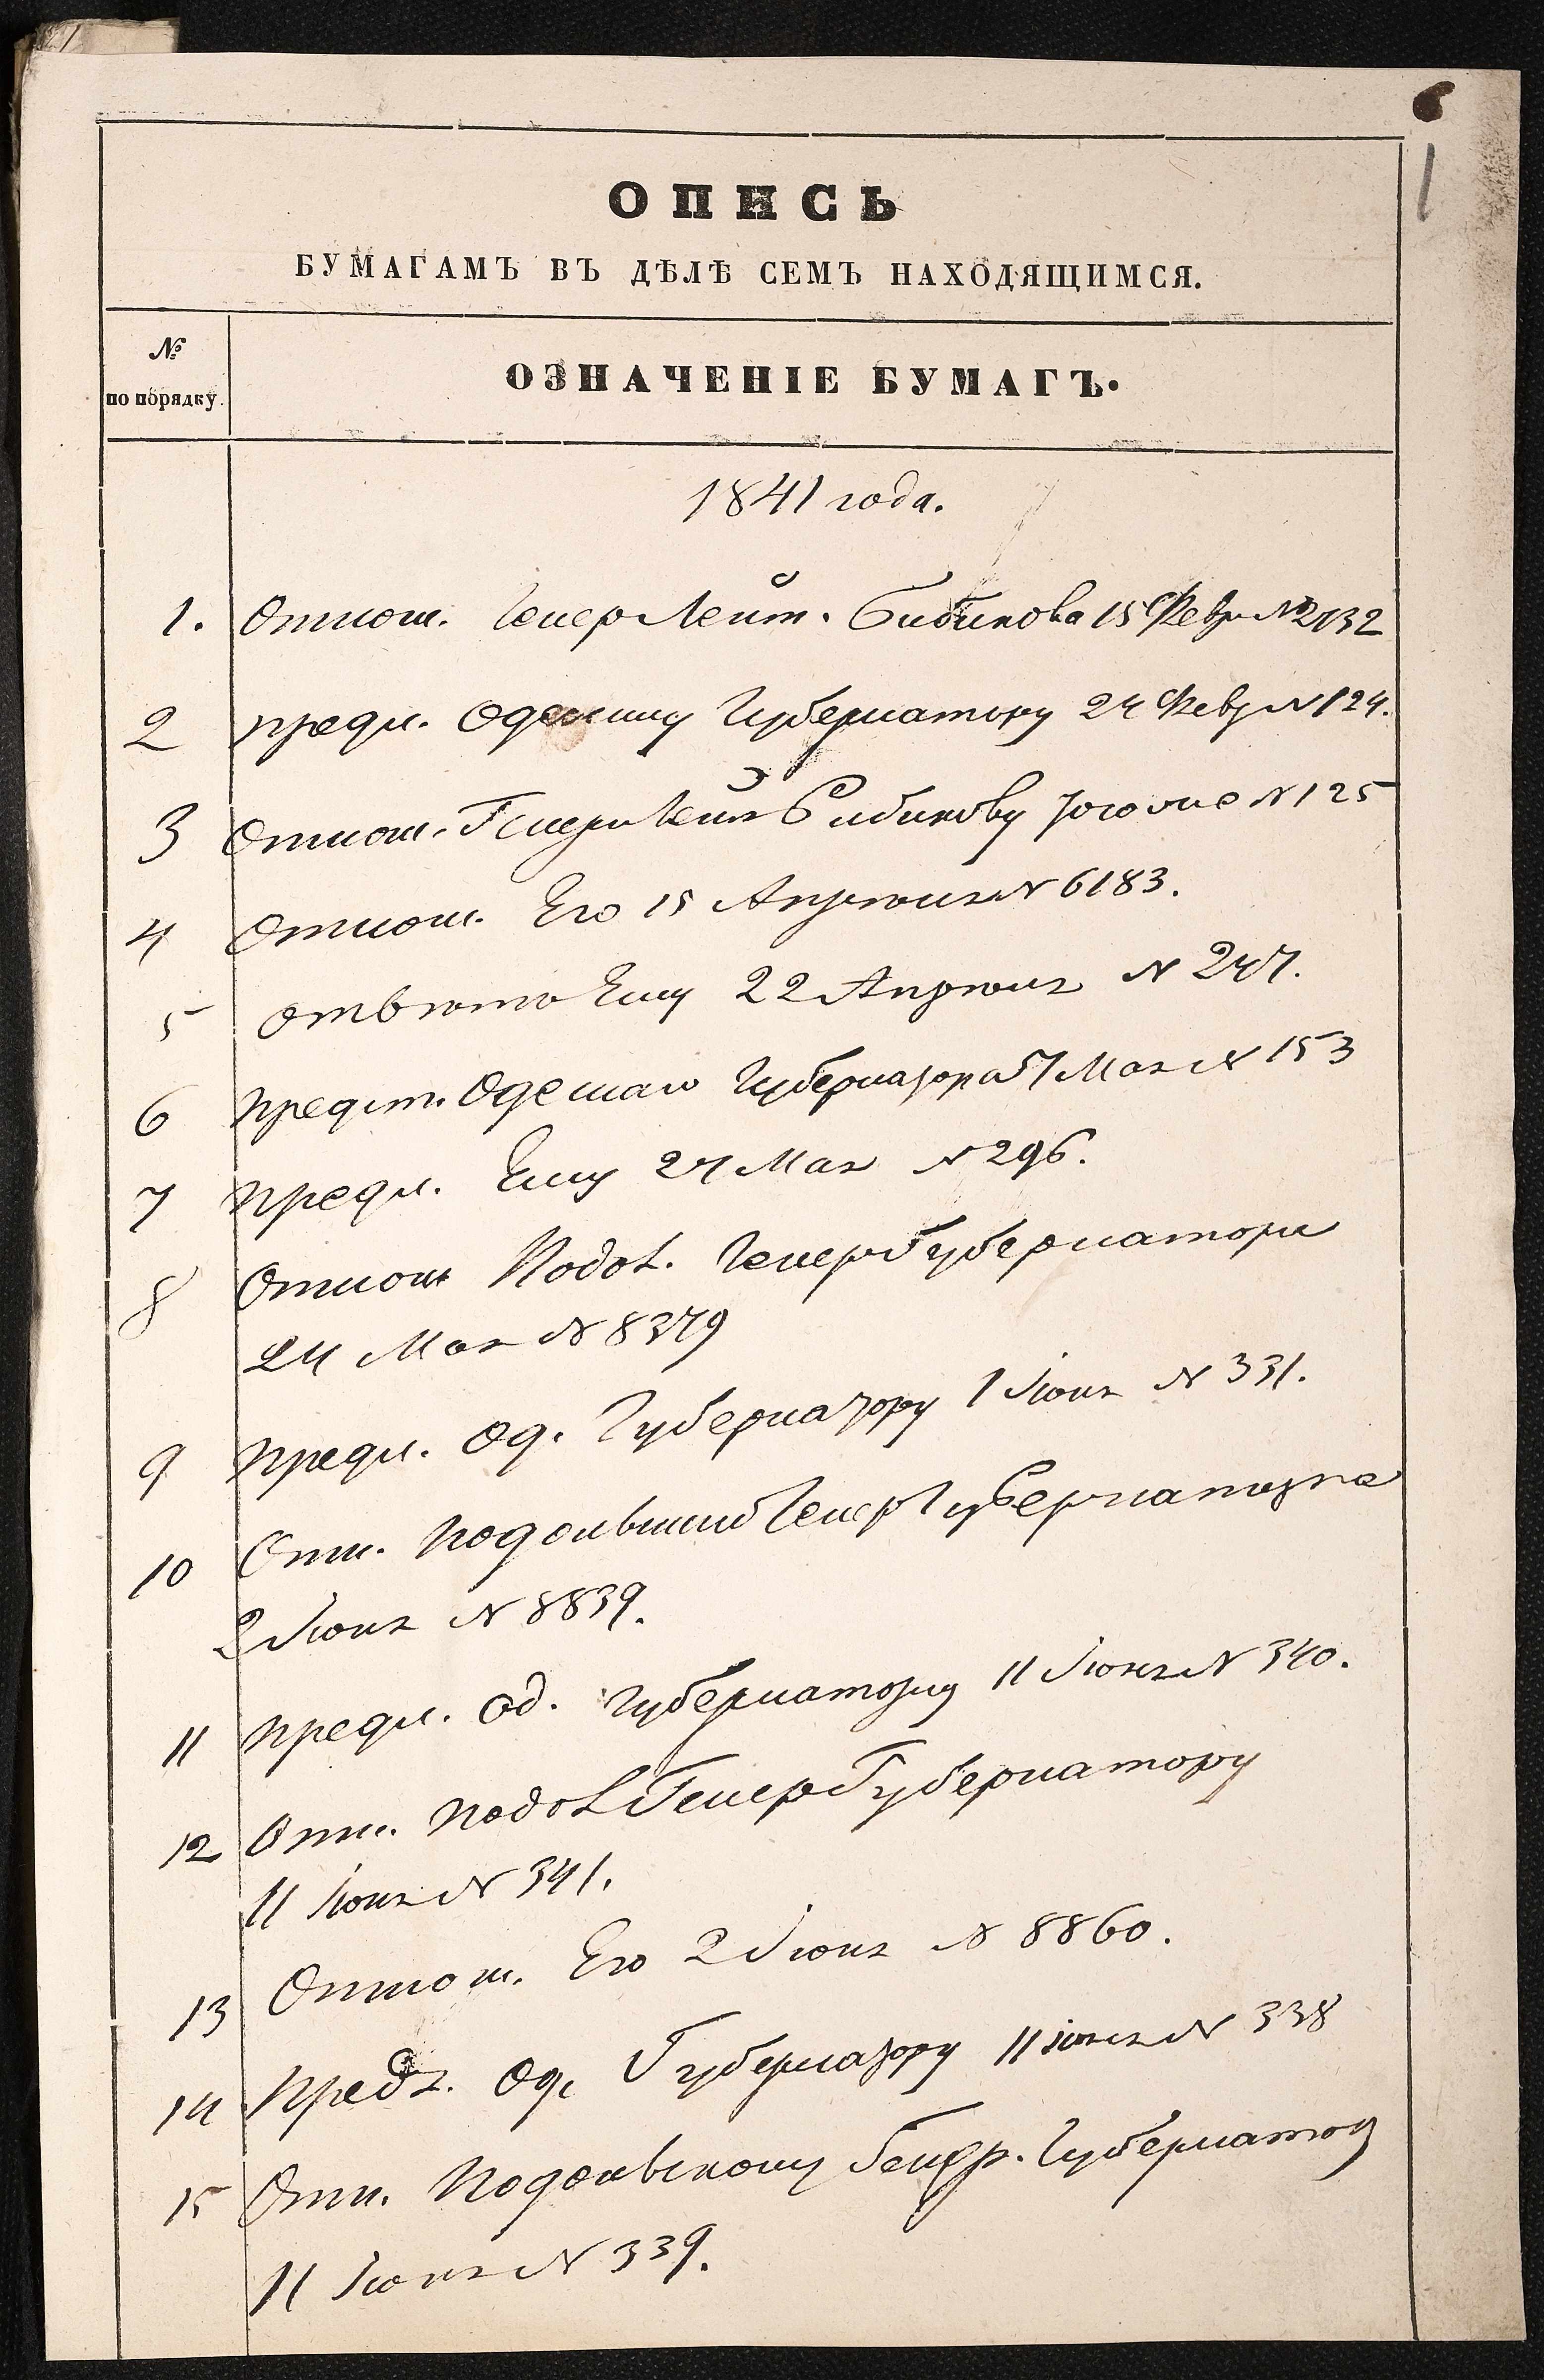 1
ОПИСЬ
БУМАГАМЪ ВЪ ДѢЛѢ СЕМЪ НАХОДЯЩИМСЯ.
№ по порядку.
ОЗНАЧЕНІЕ БУМАГЪ.
1841 года.
1. Отнош. Генер Лейт. Бибикова 15 Февр № 2132
2 предл. Одескому Губернатору 24 Февр N 124.
3 Отнош. Генер Лейт Бибикову того же N 125
4 Отнош. Его 15 Апрѣля N 6183.
5 Отвѣтъ Ему 22 Апрѣля N 247.
6 Предст. Одескаго Губернатора 7 Мая N 153
7 Предл. Ему 27 Мая N 296.
8 Отнош Подол. Генер Губернатора
24 Мая N 8379
9 Предл. Од. Губернатору 1 Іюня N 331.
10 Отн. Подольский Генер Губернатора
2 Іюня N 8839.
11 Предл. Од. Губернатору 11 Іюня N 340.
12 Отн. Подол Генер Губернатору
11 Іюня N 341.
13 Отнош. Его 2 Іюня N 8860.
14 Предл. Од. Губернатору 11 іюня N 338
15 Отн. Подольскому Генер. Губернатору
11 Іюня N 339.